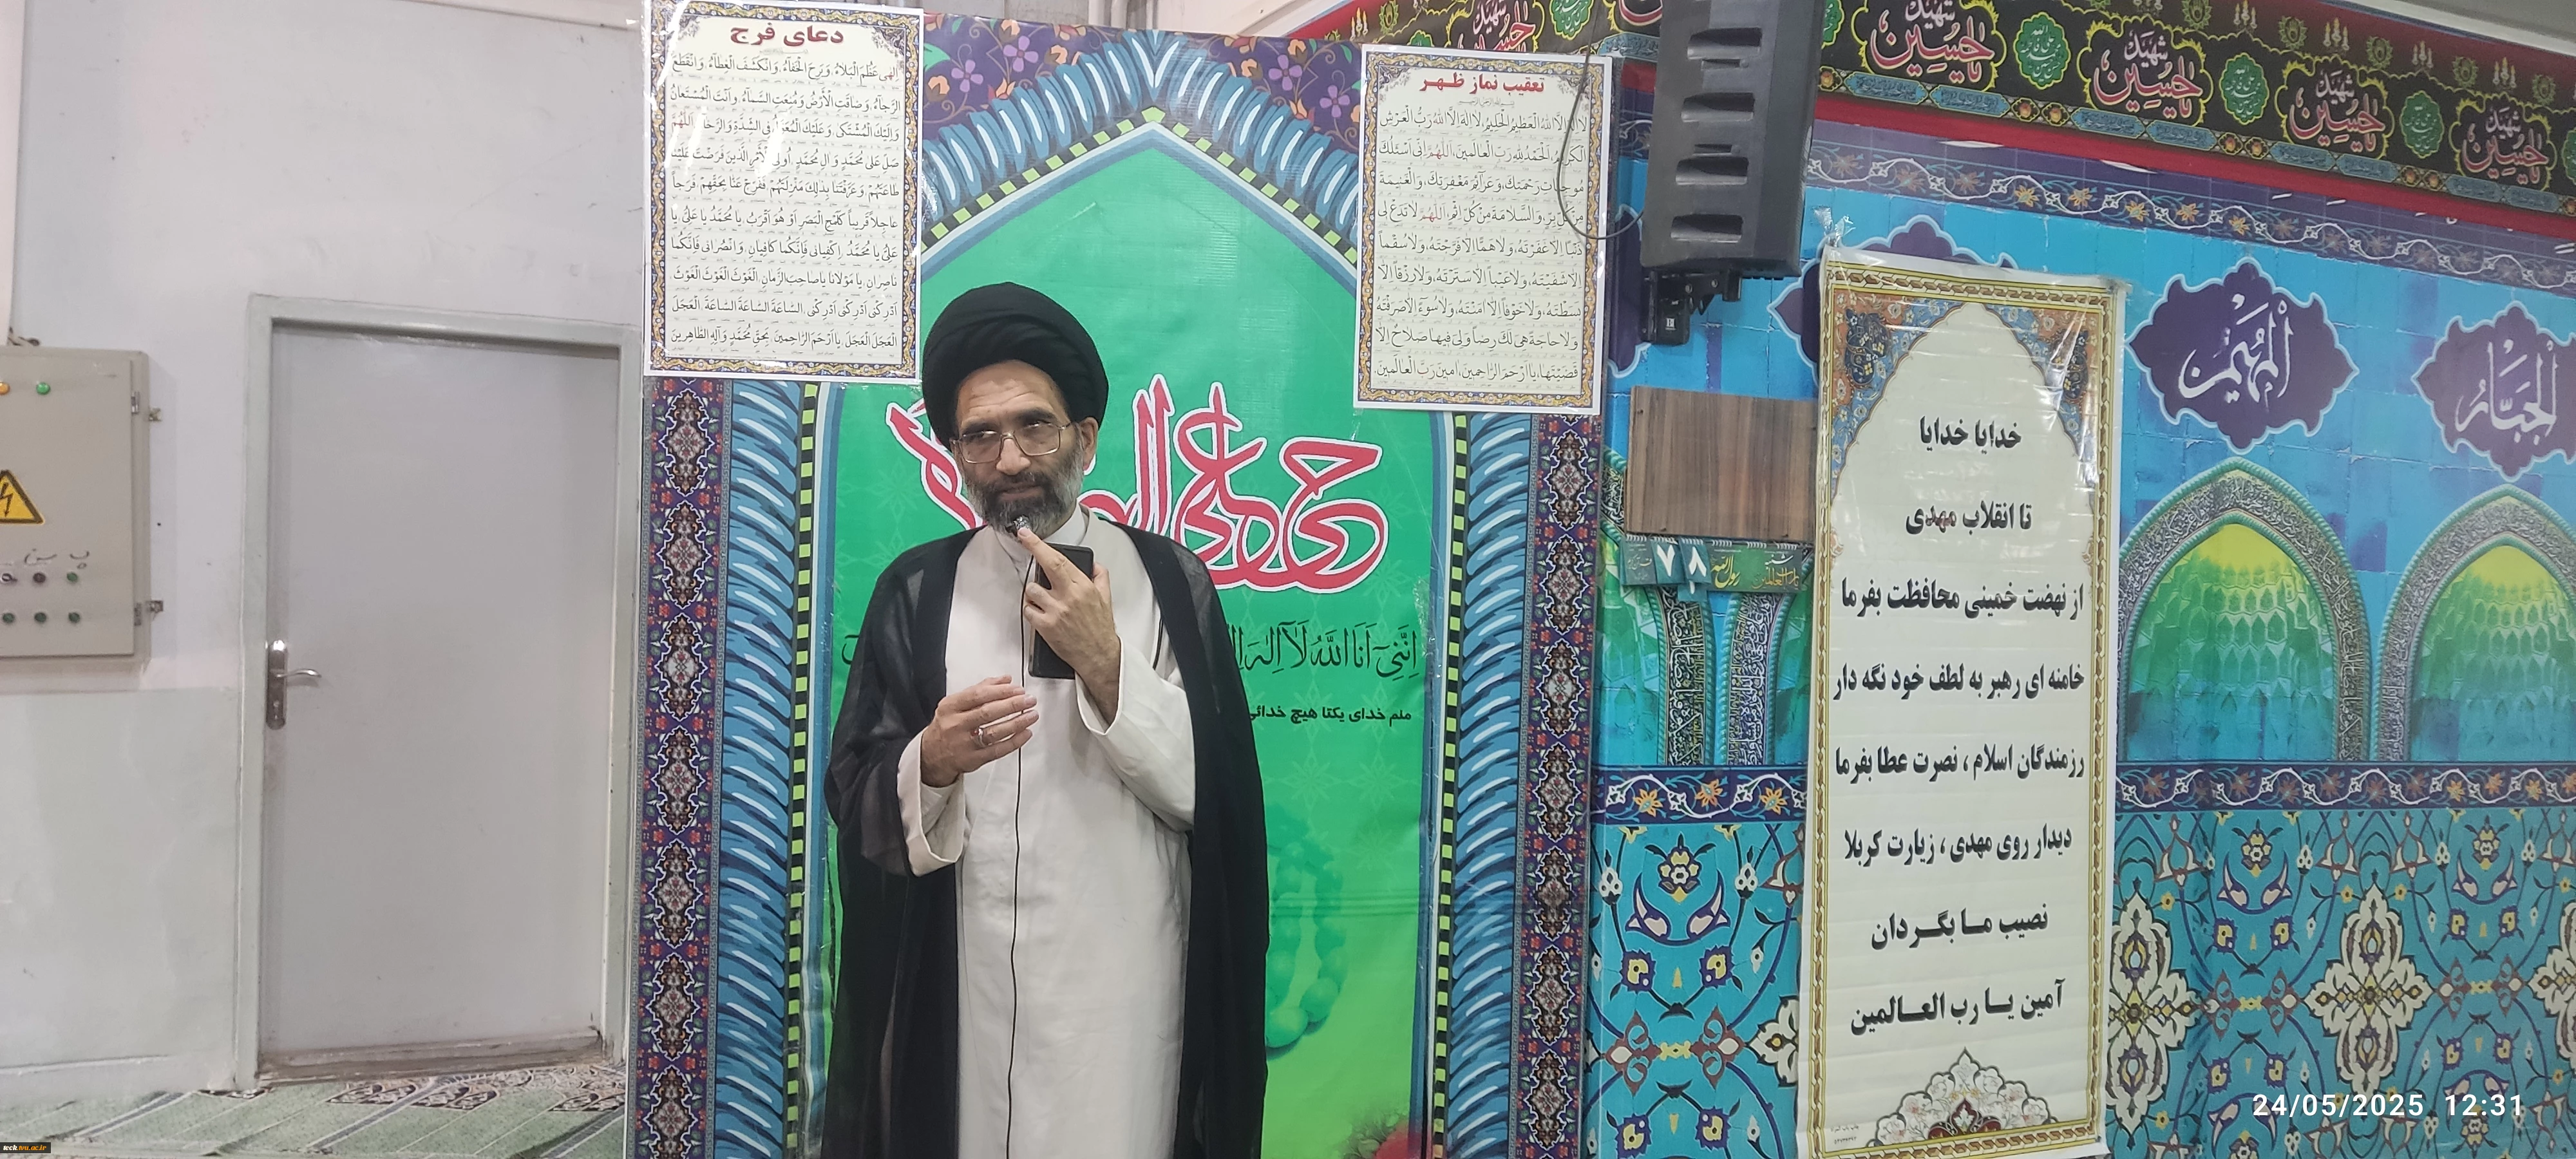 دعای فرج
اِلهی عَظُمَ الْبَلاءُ، وَبَرِحَ الْخَفآءُ، وَانْكَشَفَ الْغِطآءُ، وَانْقَطَعَ
الرَّجآءُ، وَضاقَتِ الْأَرْضُ، وَمُنِعَتِ السَّمآءُ، وَاَنْتَ الْمُسْتَعانُ
وَاِلَيْكَ الْمُشْتَكى، وَعَلَيْكَ الْمُعَوَّلُ فِى الشِّدَّةِ وَالرَّخآءِ، اَللّهُمَّ
صَلِّ عَلى مُحَمَّدٍ وَ الِ مُحَمَّدٍ، اُولِى الْأَمْرِ الَّذينَ فَرَضْتَ عَلَيْنا
طاعَتَهُمْ، وَعَرَّفْتَنا بِذلِكَ مَنْزِلَتَهُمْ، فَفَرِّجْ عَنّا بِحَقِّهِمْ، فَرَجاً
عاجِلاً قَريباً كَلَمْحِ الْبَصَرِ اَوْ هُوَ اَقْرَبُ، يا مُحَمَّدُ يا عَلِىُّ، يا
عَلِىُّ يا مُحَمَّدُ، اِكْفِيانى فَاِنَّكُما كافِيانِ، وَانْصُرانى فَاِنَّكُما
ناصِرانِ، يا مَوْلانا يا صاحِبَ الزَّمانِ، الْغَوْثَ الْغَوْثَ الْغَوْثَ
اَدْرِكْنى اَدْرِكْنى اَدْرِكْنى، السّاعَةَ السّاعَةَ السّاعَةَ، الْعَجَلَ
الْعَجَلَ الْعَجَلَ، يا اَرْحَمَ الرّاحِمينَ، بِحَقِّ مُحَمَّدٍ وَآلِهِ الطّاهِرينَ
تعقیب نماز ظهر
لا اِلهَ اِلَّا اللهُ الْعَظيمُ الْحَليمُ، لا اِلهَ اِلَّا اللهُ رَبُّ الْعَرْشِ
الْكَريمُ، اَلْحَمْدُ لِلّهِ رَبِّ الْعالَمينَ، اَللّهُمَّ اِنّى اَسْئَلُكَ
مُوجِباتِ رَحْمَتِكَ، وَعَزآئِمَ مَغْفِرَتِكَ، وَالْغَنيمَةَ
مِنْ كُلِّ بِرٍّ، وَالسَّلامَةَ مِنْ كُلِّ اِثْمٍ، اَللّهُمَّ لا تَدَعْ لى
ذَنْباً اِلاّ غَفَرْتَهُ، وَلا هَمّاً اِلاّ فَرَّجْتَهُ، وَلا سُقْماً
اِلاّ شَفَيْتَهُ، وَلا عَيْباً اِلاّ سَتَرْتَهُ، وَلا رِزْقاً اِلاّ
بَسَطْتَهُ، وَلا خَوْفاً اِلاّ امَنْتَهُ، وَلا سُوءً اِلاّ صَرَفْتَهُ
وَلا حاجَةً هِىَ لَكَ رِضاً وَلِىَ فيها صَلاحٌ اِلاّ
قَضَيْتَها، يا اَرْحَمَ الرّاحِمينَ، امينَ رَبَّ الْعالَمينَ.
حی علی
اِنَّنی اَنَا اللّٰهُ لَآ اِلٰهَ
منم خدای یکتا هیچ خدائی
شهید
یا حسین
شهید
یا حسین
شهید
یا حسین
شهید
یا حسین
اَلْمُهَیْمِن
اَلْجَبّار
۷۸
رسول الله
خدایا خدایا
تا انقلاب مهدی
از نهضت خمینی محافظت بفرما
خامنه ای رهبر به لطف خود نگه دار
رزمندگان اسلام ، نصرت عطا بفرما
دیدار روی مهدی ، زیارت کربلا
نصیب مـا بگـردان
آمین یـا رب العـالمین
24/05/2025 12:31
teck.tvu.ac.ir